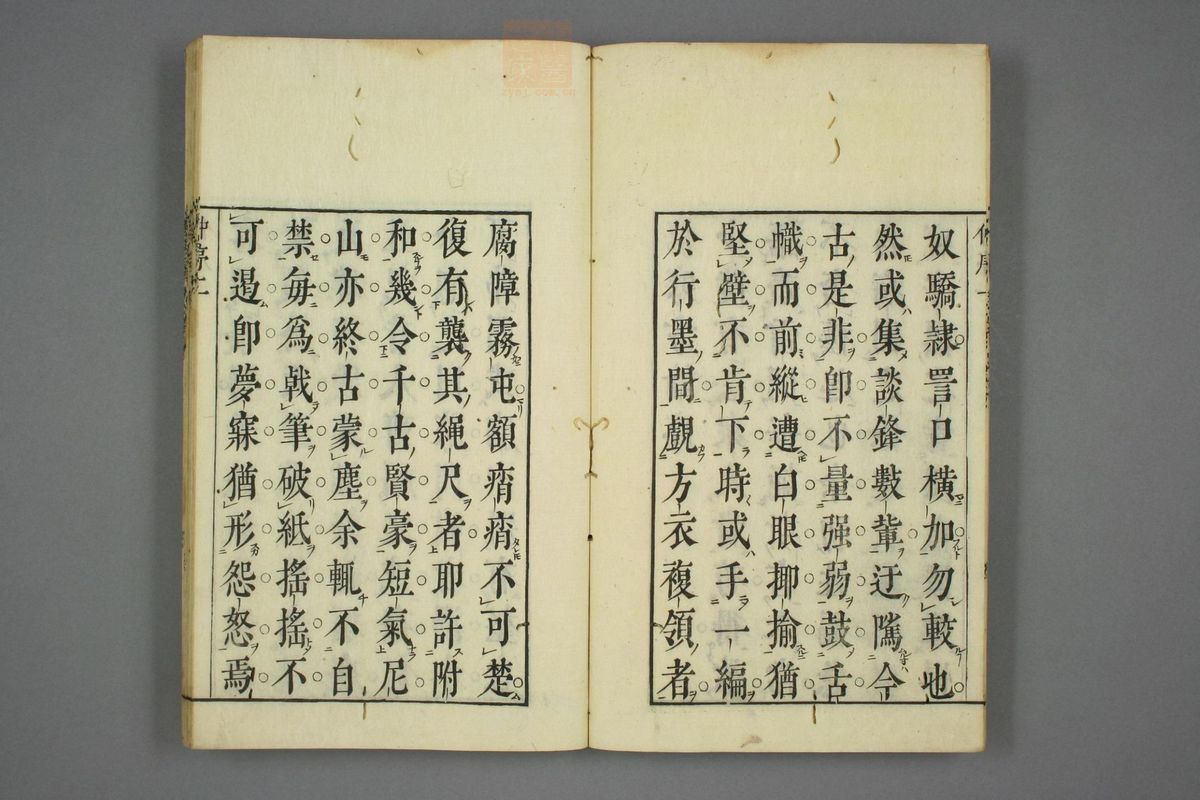 奴驕隷詈口横加勿較也
然或集談鋒數輩迂嶲今
古是非卽不量强弱鼓舌
幟而前縱遭白眼揶揄猶
堅壁不肯下時或手一編
於行墨間覰方衣複領者
腐障霧屯額痟痟不可楚
復有襲其繩尺者耶許附
和幾令千古賢豪短氣尼
山亦終古蒙塵余輒不自
禁毎爲戟筆破紙搖搖不
可遏卽夢寐猶形怨怒焉